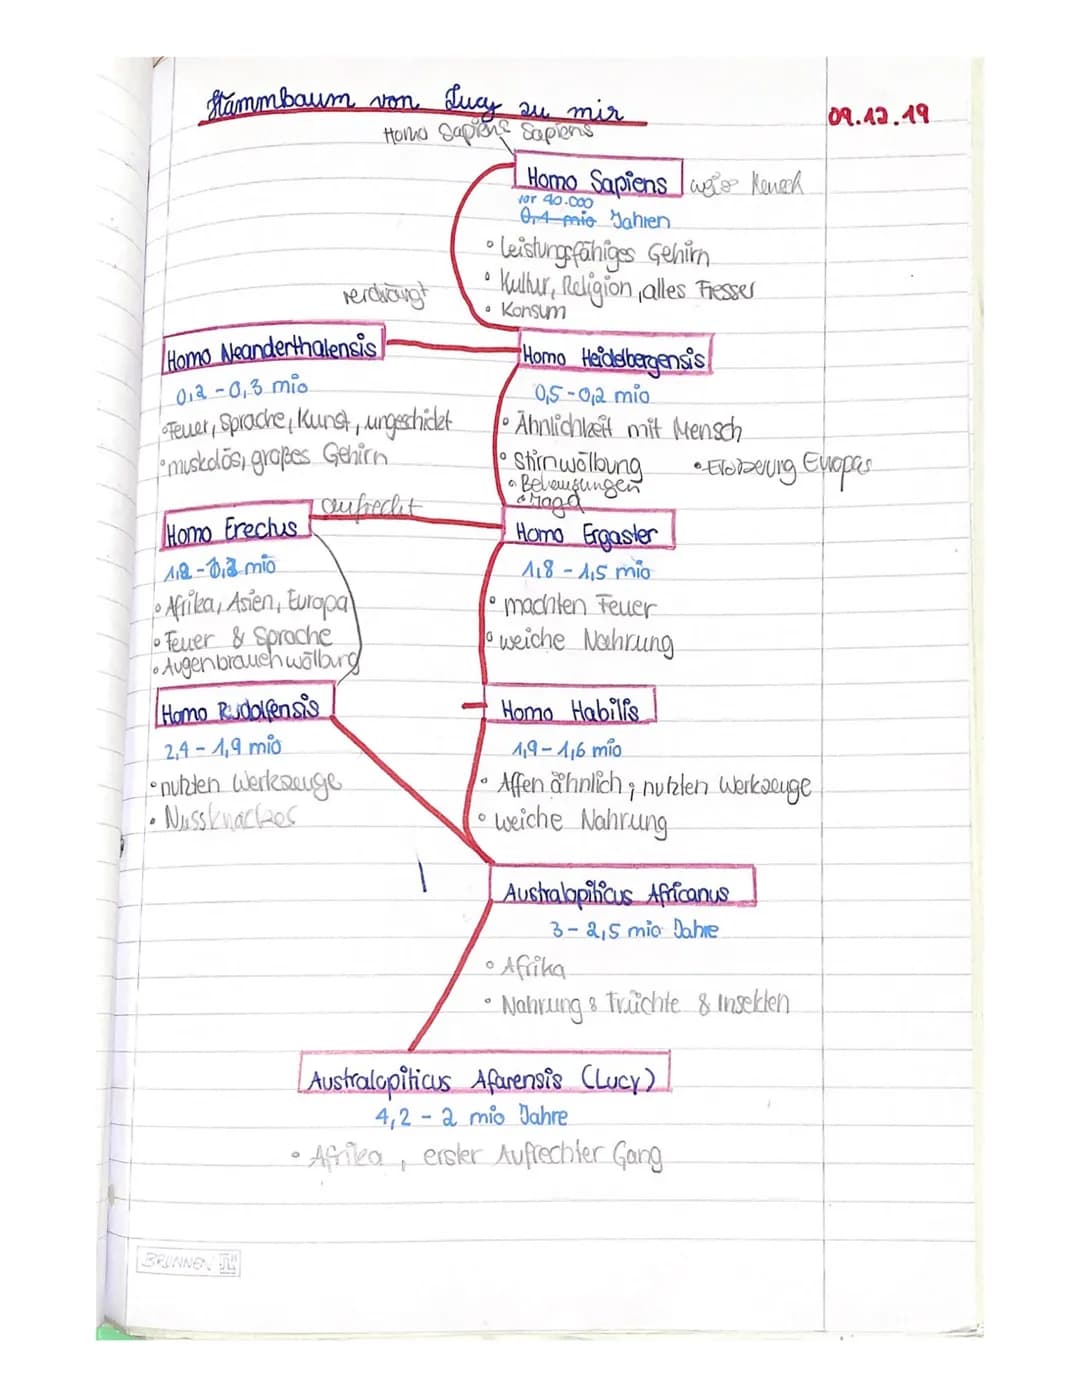 Stammbaum von Lucy zu mir
09.12.19
Homo Sapiens Sapiens
Homo Sapiens
Mensch
vor 40.000
0,1 mio Jahren
• Leistungsfähiges Gehirn
• Kultur, Religion, alles Fresser
• Konsum
verdrängt
Homo Neanderthalensis
0,2 - 0,3 mio
• Feuer, Sprache, Kunst, ungeschickt
• muskolös, großes Gehirn
Homo Heidelbergensis
0,5 - 0,2 mio
• Ähnlichkeit mit Mensch
• Stirnwölbung
• Eroberung Europas
• Behausungen
• Jagd
aufrecht
Homo Erectus
mio
• Afrika, Asien, Europa
• Feuer & Sprache
• Augenbrauenwölbung
Homo Ergaster
1,8 - 1,5 mio
• machten Feuer
• weiche Nahrung
Homo Rudolfensis
2,4 - 1,9 mio
• nutzten Werkzeuge
• Nussknacker
Homo Habilis
1,9 - 1,6 mio
• Affen ähnlich ; nutzten Werkzeuge
• weiche Nahrung
Australopiticus Africanus
3 - 2,5 mio Jahre
• Afrika
• Nahrung : Früchte & Insekten
Australopiticus Afarensis (Lucy)
4,2 - 2 mio Jahre
• Afrika, erster Aufrechter Gang
BRUNNEN